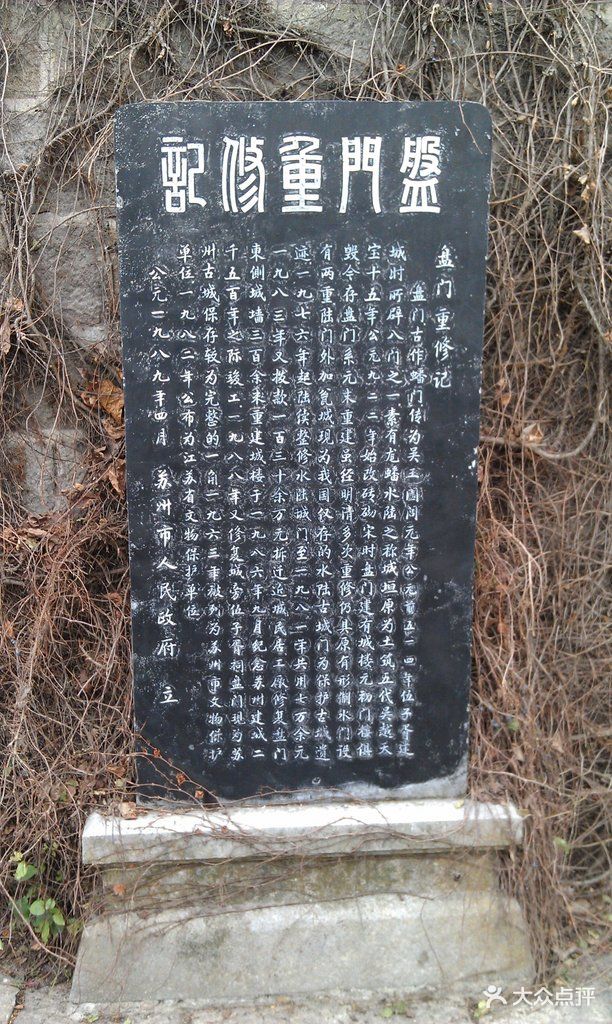 盤門重修記
盘门重修记
盘门古作蟠门传为吴王阖闾元年公元前五一四年伍子胥建
城时所辟八门之一素有龙蟠水陆之称城垣原为土筑五代吴越天
宝十五年公元九二二年始改砖砌宋时盘门建有城楼元初门楼俱
毁今存盘门系元末重建虽经明清多次重修仍具原有形制水门设
有两重陆门外加瓮城现为我国仅存的水陆古城门为保护古城遗
迹一九七六年起陆续整修水陆城门至一九八一年共用七万余元
一九八三年又拨款一百三十余万元拆迁近城民居工厂修复盘门
東侧城墙三百余米重建城楼于一九八六年九月纪念苏州建城二
千五百年之际竣工一九八八年又修复城旁伍子胥祠盘门现为苏
州古城保存较为完整的一角一九六三年被列为苏州市文物保护
单位一九八二年公布为江苏省文物保护单位
公元一九八九年四月 苏州市人民政府 立
大众点评